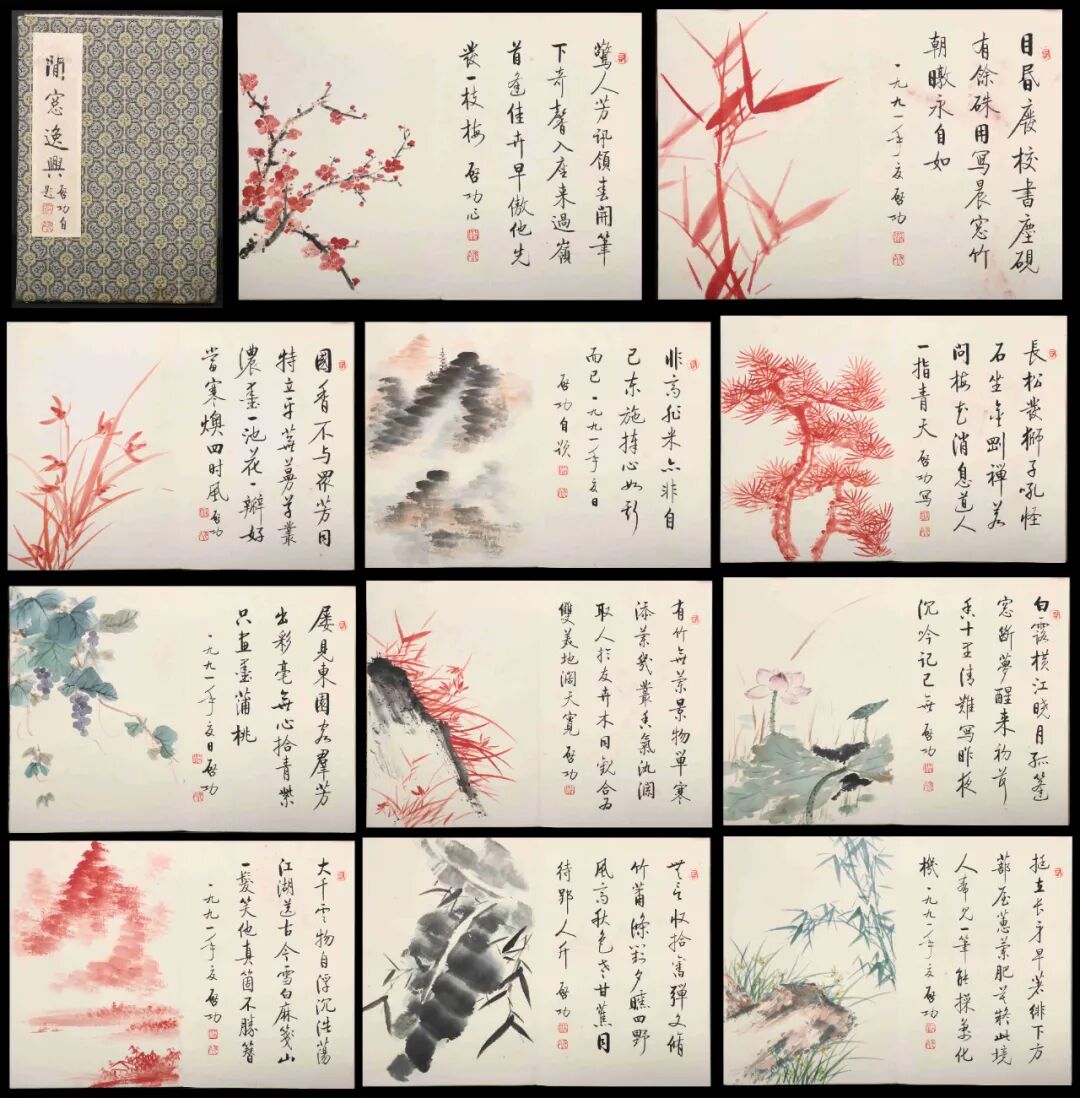 閒窓逸興
啓功自
題
驚人芳訊領春開筆
下奇馨入座来過嶺
首逢佳卉早傲他先
發一枝梅 啓功作
目昏廢校書塵硯
有餘硃用寫晨窓竹
朝暾永自如
一九九一年夏啓功
國香不與眾芳同
特立平蕪蔓草叢
濃墨一池花一瓣好
當寒燠四時風 啓功
非高非米亦非自
己東施捧心如斯
而已一九九一年夏日
啓功自題
長松發獅子吼怪
石坐金剛禅若
問梅花消息道人
一指青天啓功寫
屡見東園羣芳
出彩毫無心拾青紫
只畫墨蒲桃
一九九一年夏日啓功
有竹無蘭景物單寒
添葉幾叢香氣
取人於友卉木同觀合為
雙美地濶天寬 啓功
白露橫江曉月孤篷
窓断夢醒来初荷
香十里清難寫昨夜
沉吟記已無 啓功
大千雲物自浮沉浩蕩
江湖送古今雪白麻箋山
一髮笑他真箇不勝簪
一九九一年夏啓功
無言收拾舊彈文脩
竹蕭條對夕曛四野
風高秋色老甘蕉同
待郢人斤 啓功
挺立長矛早著緋下方
蔀屋葉肥此境
人希見一筆能探造化
機一九九一年夏啓功